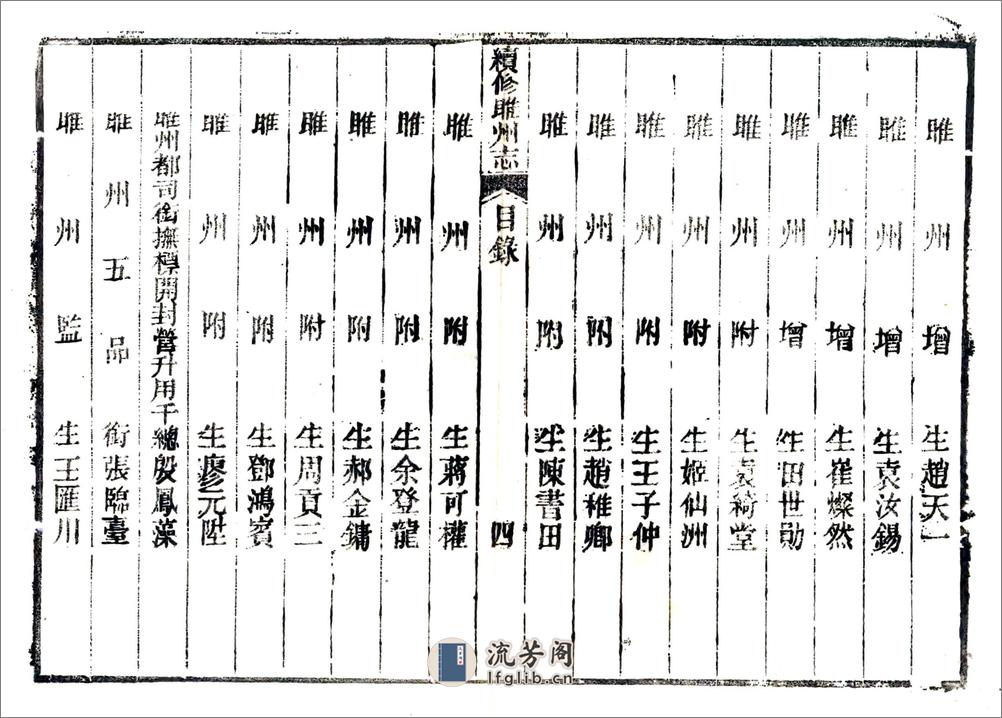 睢州增生趙天一
睢州增生袁汝錫
睢州增生崔燦然
睢州增生田世勛
睢州附生袁綺堂
睢州附生姬仙洲
睢州附生王子仲
睢州附生趙稚卿
睢州附生陳書田
續修睢州志 目錄 四
睢州附生蔣可權
睢州附生余登龍
睢州附生郝金鏞
睢州附生周貢三
睢州附生鄧鴻賓
睢州附生廖元陞
睢州都司銜撫標開封營升用千總殷鳳藻
睢州五品銜張臨臺
睢州監生王匯川
流芳阁
lfglib.cn